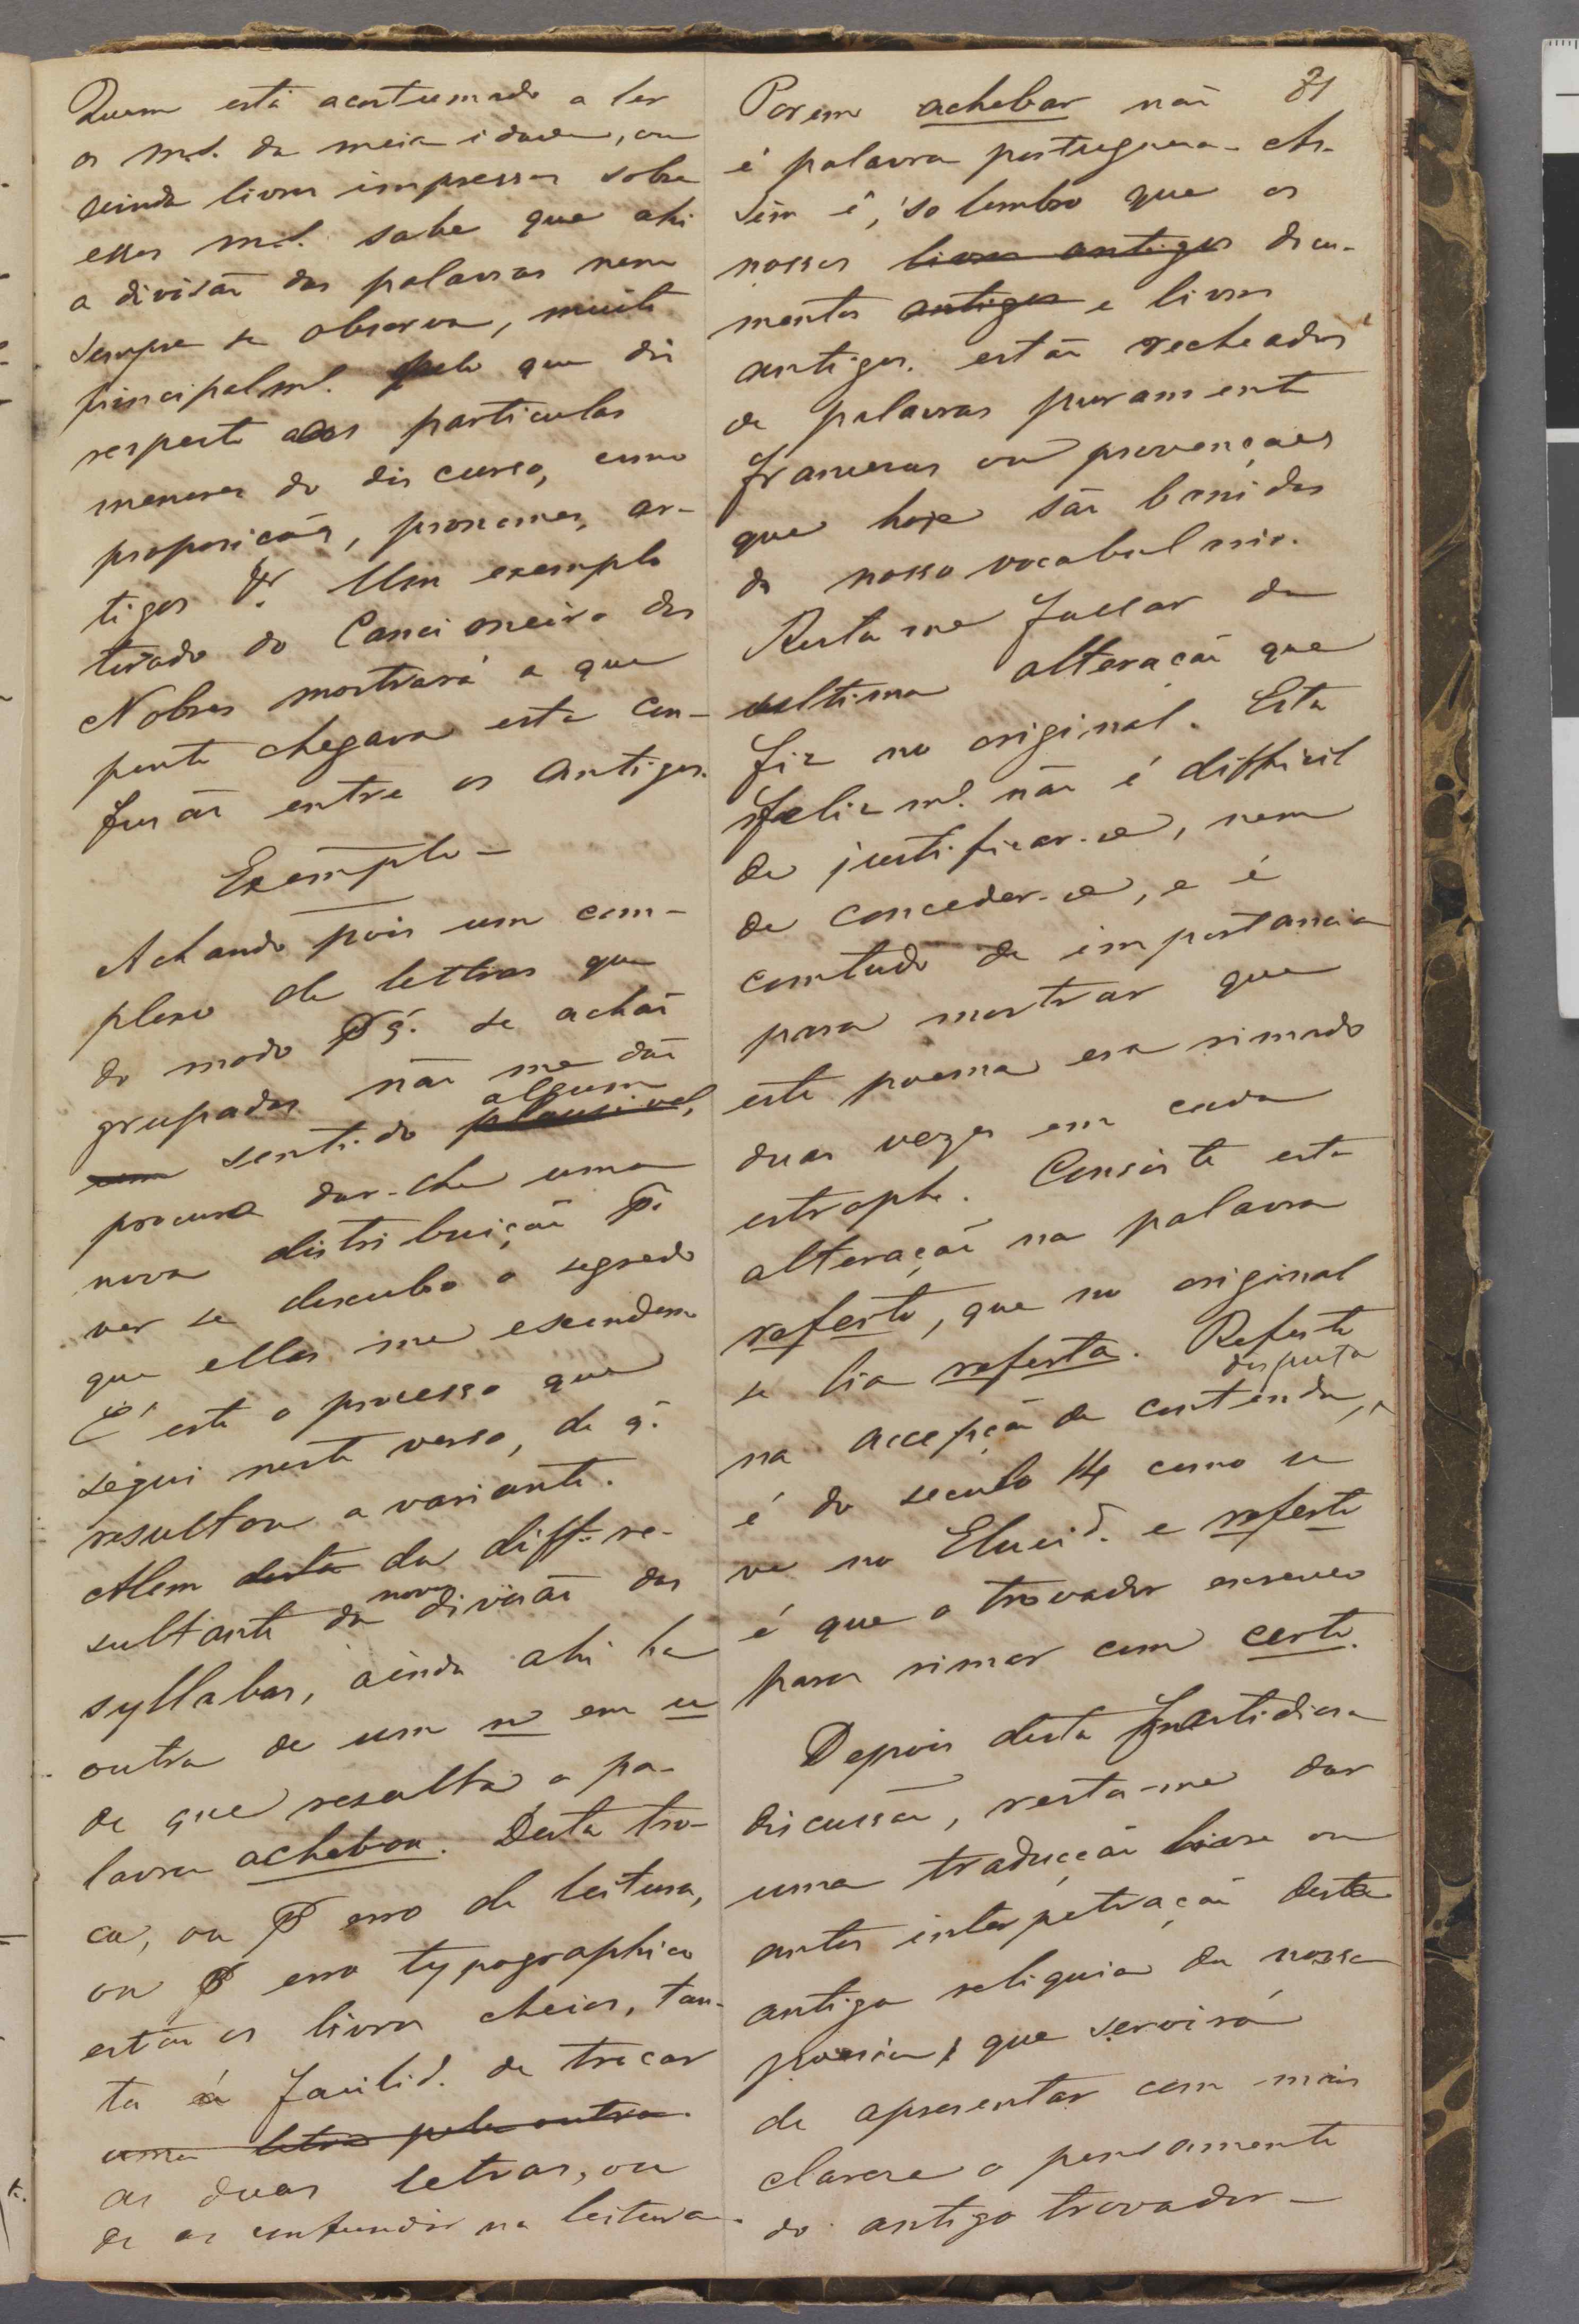 Quem está acostumado a ler
os m.s. da meia idade, ou
ainda livros impressos sobre
esses m.s. sabe que ahi
a divisão das palavras nem
sempre se observa, muito
principalm.te pelo que diz
respeito aos particulas
menores do discurso, como
preposições, pronomes, ar-
tigos &. Um exemplo
tirado do Cancioneiro dos
Nobres mostrará a que
ponto chegava esta con-
fusão entre os antigos.
Exemplo —
Achando pois um com-
plexo de lettras que
do modo p.r q. se achão
grupadas não me dão
algum
um sentido plausivel,
procuro dar-lhe uma
nova distribuição p.a
ver se descubro o segredo
que ellas me escondem
É este o processo que
segui neste verso, de q.
resultou a variante.
Alem desta da diff.ça re-
sultante da nova divisão das
syllabas, ainda ahi ha
outra de um n em u
de que resulta a pa-
lavra achebou. Desta tro-
ca, ou p.r erro de leitura,
ou p.r erro typographico
estão os livros cheios, tan-
ta é a facilid.e de trocar
uma letra pela outra.
as duas letras, ou
de as confundir na leitura.
31
Porem achebar não
é palavra portugueza. As-
sim é, só lembro que os
nossos livros antigos docu-
mentos antigos e livros
antigos. estão recheados
de palavras puramente
francezas ou provençaes
que hoje são banidas
do nosso vocabulario.
Resta me fallar da
ultima alteração que
fiz no original. Esta
felizm.te não é difficil
de justificar-se, nem
de conceder-se, e é
comtudo de importancia
para mostrar que
este poema era rimado
duas vezes em cada
estrophe. Consiste esta
alteração na palavra
referto, que no original
se lia referta. Referto
na accepção de contenda, disputa
é do seculo 14 como se
ve no Elucid. e referto
é que o trovador escreveo
para rimar com certo.
Depois desta fastidiosa
discussão, resta-me dar
uma traducção livre ou
antes interpetração desta
antiga reliquia da nossa
poesia, que servirá
de apresentar com mais
clareza o pensamento
do antigo trovador —